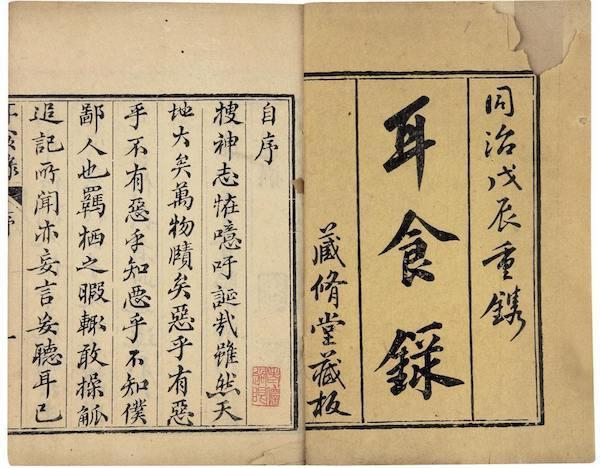 同治戊辰重鐫
耳食録
藏脩堂藏板
自序
搜神志恠噫吁誕哉雖然天
地大矣萬物賾矣惡乎有惡
乎不有惡乎知惡乎不知僕
鄙人也羈栖之暇輙敢操觚
追記所聞亦妄言妄聽耳已
耳食录 序 一